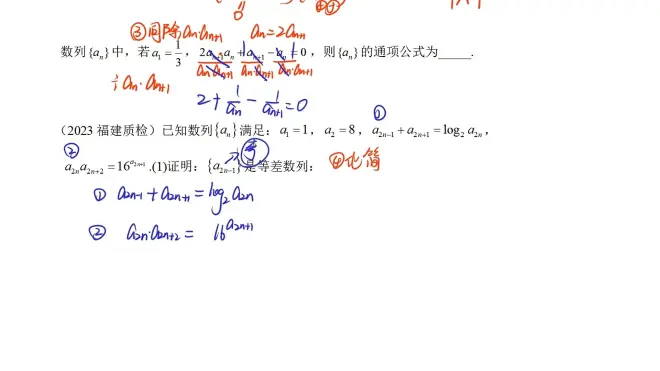 ③同除aₙ·aₙ₊₁ aₙ=2aₙ₊₁
数列{aₙ}中，若a₁=1/3，2aₙ₊₁aₙ+aₙ₊₁-aₙ=0，则{aₙ}的通项公式为_____.
aₙ·aₙ₊₁ aₙ·aₙ₊₁ aₙ·aₙ₊₁
÷aₙ·aₙ₊₁
2+1/aₙ-1/aₙ₊₁=0
①
（2023福建质检）已知数列{aₙ}满足：a₁=1，a₂=8，a₂ₙ₋₁+a₂ₙ₊₁=log₂a₂ₙ，
②
a₂ₙa₂ₙ₊₂=16^(a₂ₙ₊₁).(1)证明：{a₂ₙ₋₁}是等差数列： ④化简
① a₂ₙ₋₁+a₂ₙ₊₁=log₂a₂ₙ
② a₂ₙ·a₂ₙ₊₂= 16^(a₂ₙ₊₁)